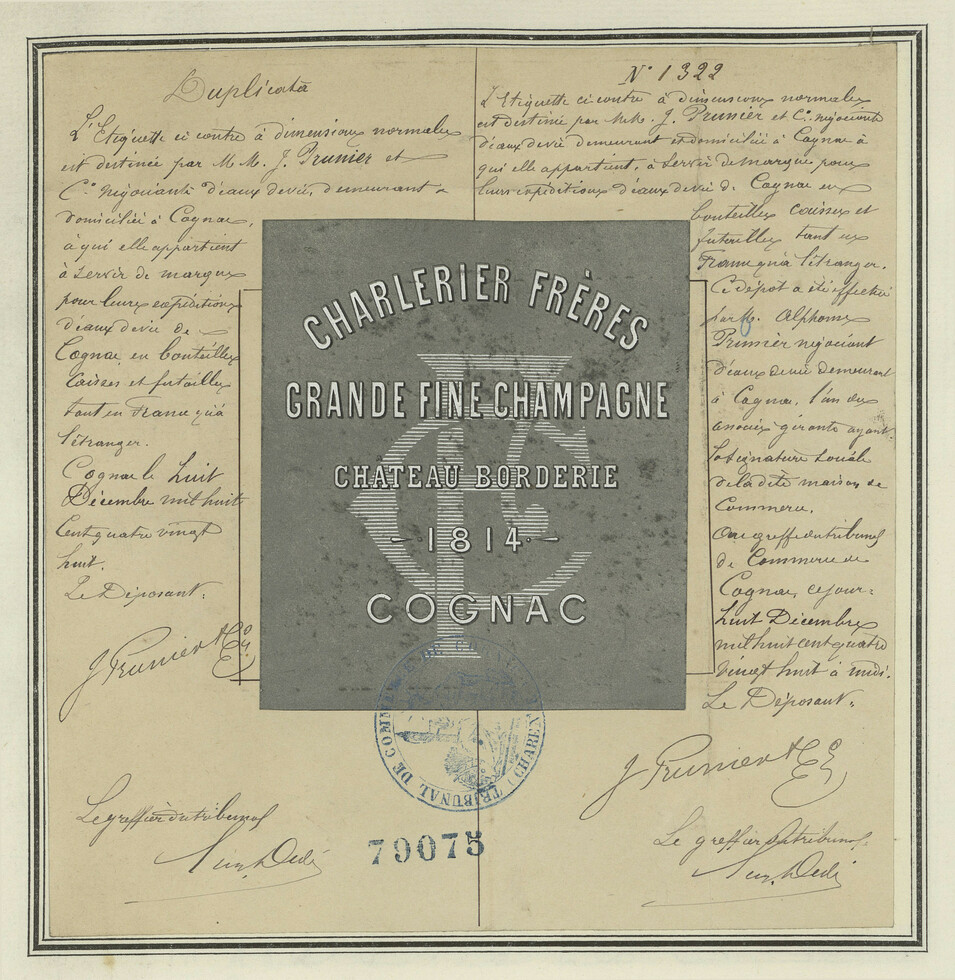 Duplicata
L'Etiquette ci contre à dimensions normales
est destinée par M.M. J. Prunier et
Cie. négociants d'eaux de vie, demeurant &
domiciliés à Cognac,
à qui elle appartient
à servir de marque
pour leurs expéditions
d'eaux de vie de
Cognac en bouteilles
caisses et futailles
tant en France qu'à
l'étranger.
Cognac le huit
Décembre mil huit
cent quatre vingt
huit.
Le Déposant.
J Prunier & Cie
Le greffier du tribunal
N° 1322
L'Etiquette ci contre à dimensions normales
est destinée par M.M. J. Prunier et Cie. négociants
d'eaux de vie demeurant et domiciliés à Cognac à
qui elle appartient, à servir de marque pour
leurs expéditions d'eaux de vie de Cognac en
bouteilles caisses et
futailles tant en
France qu'à l'étranger.
Ce dépot a été effectué
par M. Alphonse
Prunier négociant
d'eaux de vie demeurant
à Cognac, l'un des
associés gérants ayant
la signature sociale
de la dite maison de
Commerce.
Au greffe du tribunal
de Commerce de
Cognac, ce jour
huit Décembre
mil huit cent quatre
vingt huit à midi.
Le Déposant.
J Prunier & Cie
Le greffier du tribunal
CHARLERIER FRÈRES
GRANDE FINE CHAMPAGNE
CHÂTEAU BORDERIE
1814
COGNAC
TRIBUNAL DE COMMERCE DE (CHARENTE)
79075